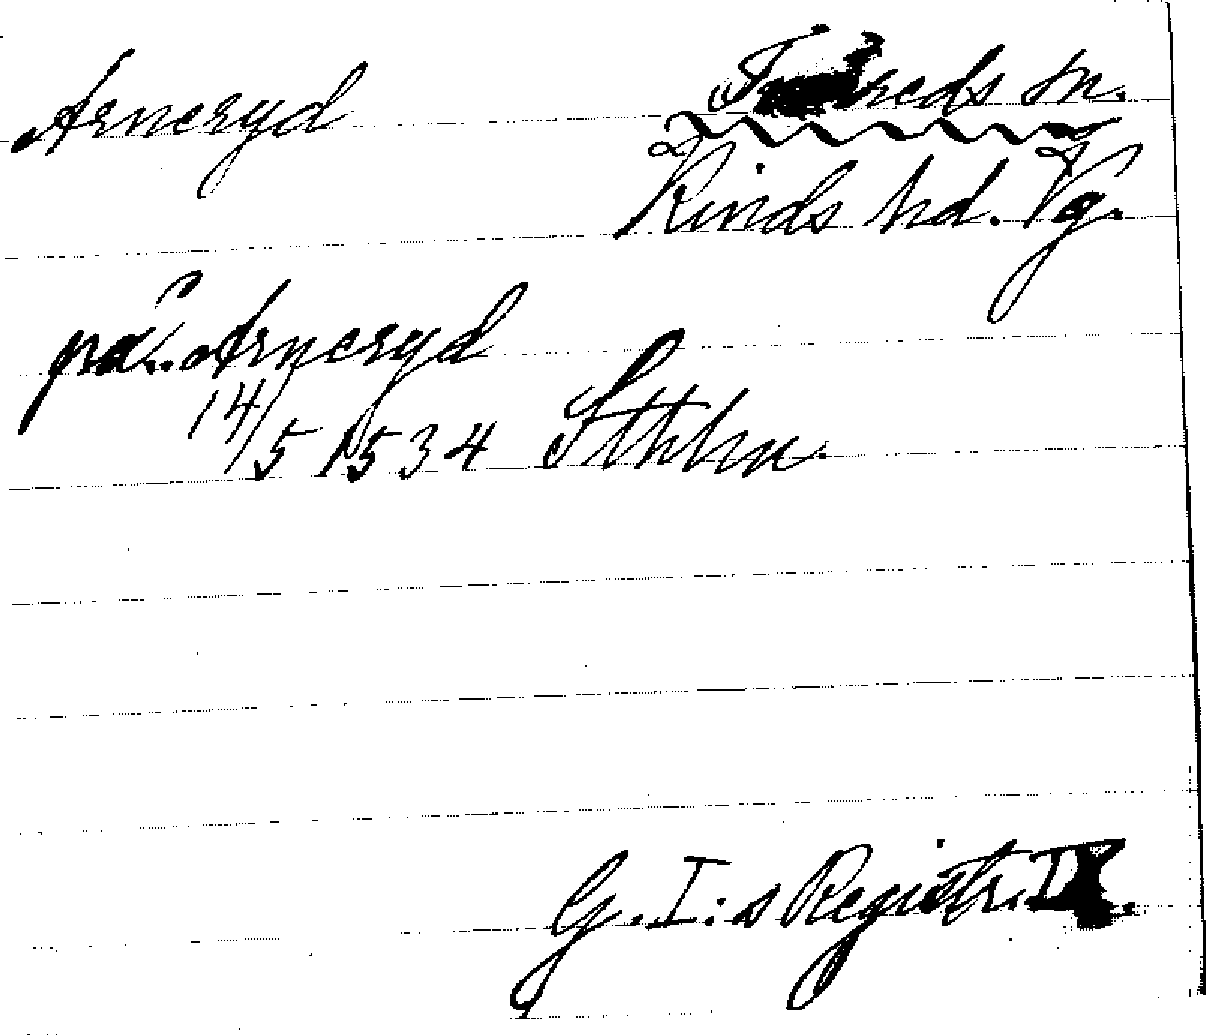 Arneryd
sn.
Kinds hd. Vg.
på Arneryd
14/5 1534 Sthlm.
G. I:s Registr. IX.